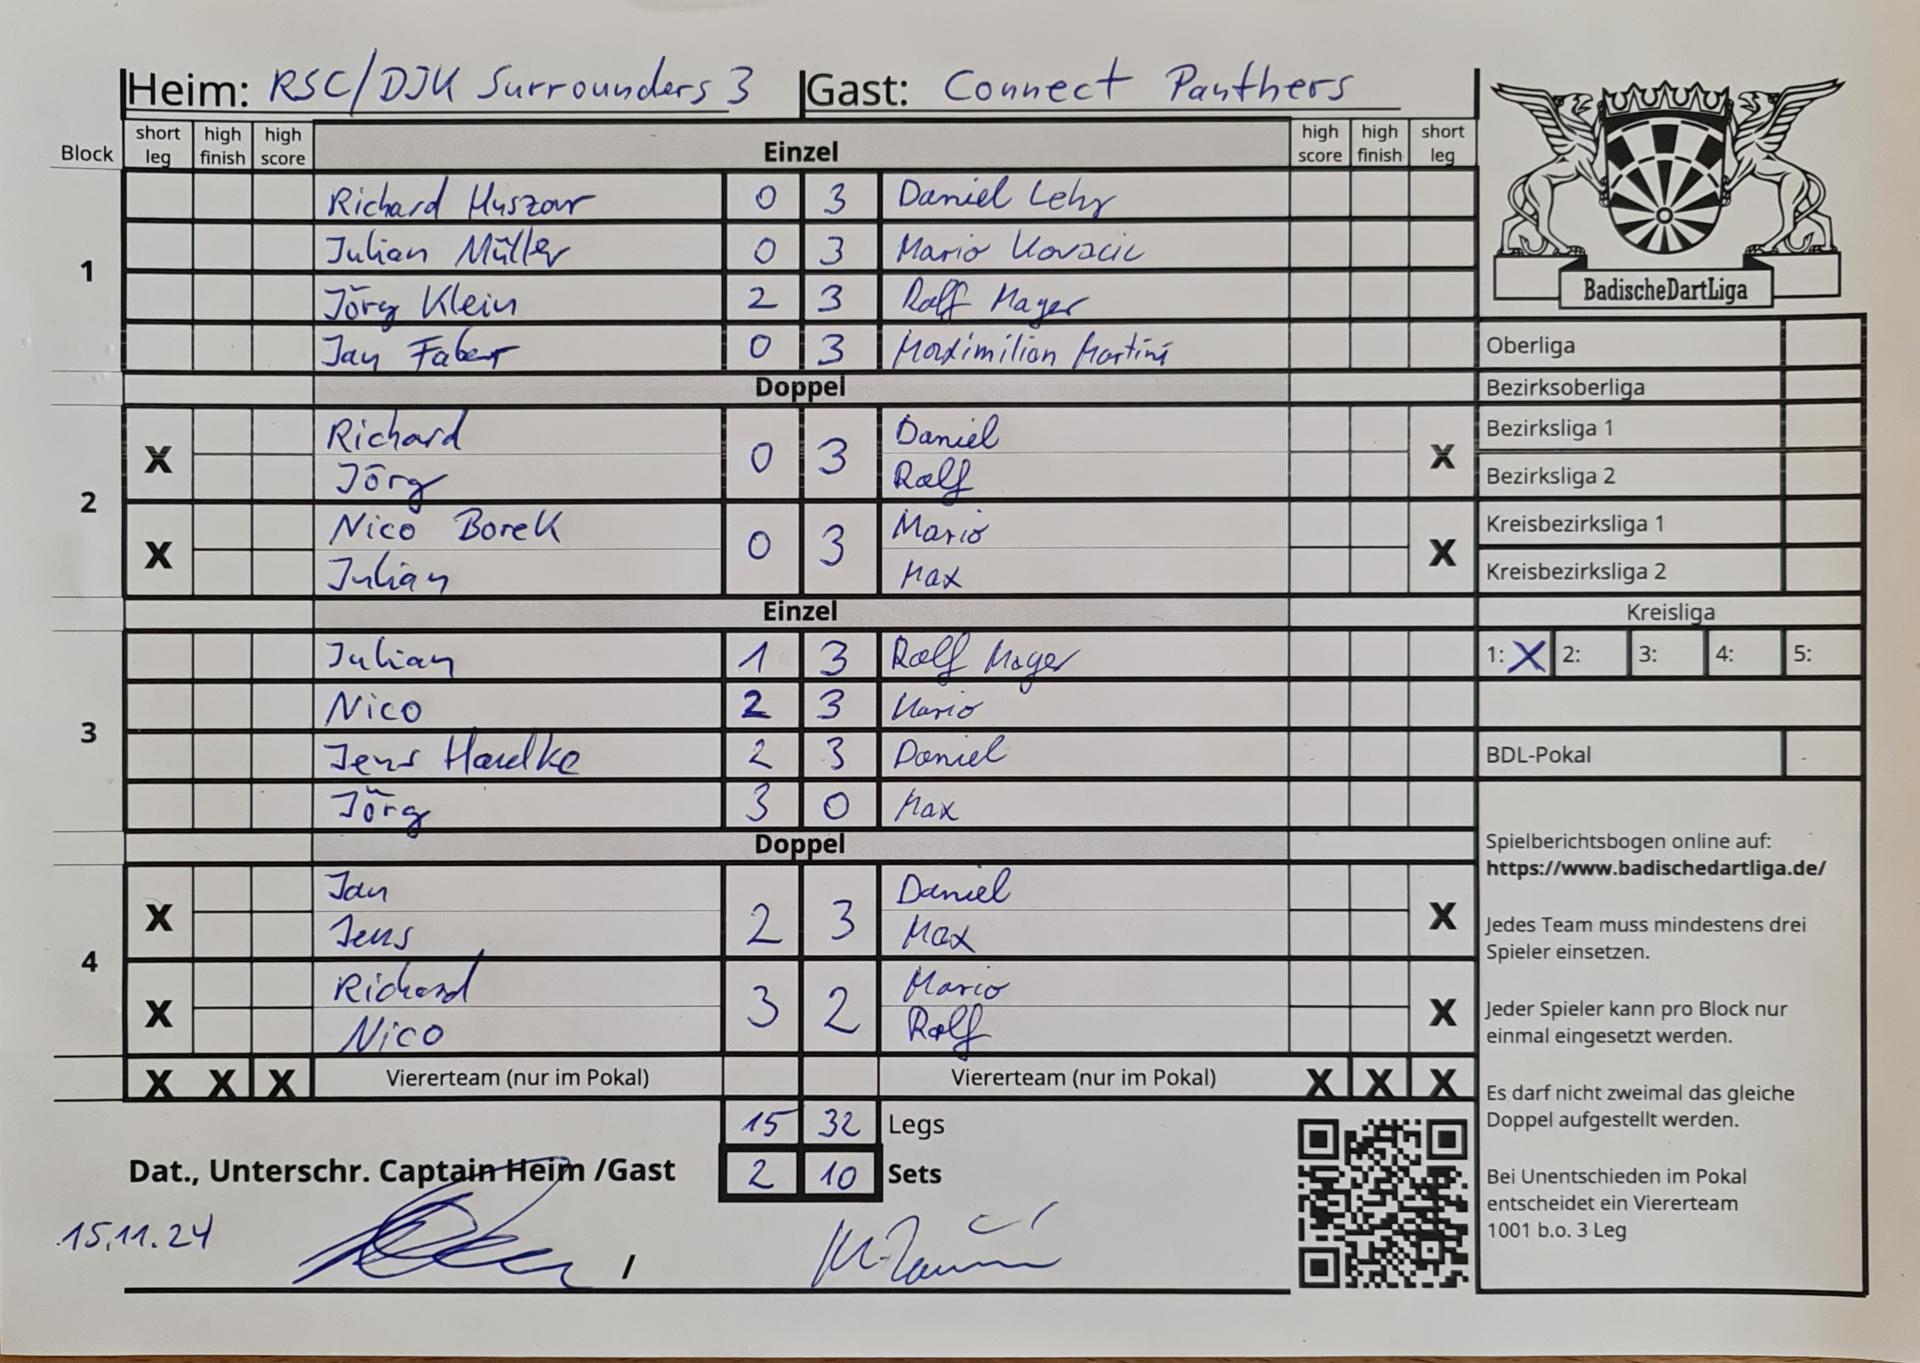 Heim: RSC/DJK Surrounders 3 Gast: Connect Panthers
Block short leg high finish high score Einzel high score high finish short leg
1
Richard Huszar 0 3 Daniel Lehr
Julian Müller 0 3 Mario Kovacic
Jörg Klein 2 3 Ralf Mayer
Jan Faber 0 3 Maximilian Martini
Doppel
2
X Richard 0 3 Daniel X
Jörg Ralf
X Nico Borek 0 3 Mario X
Julian Max
Einzel
3
Julian 1 3 Ralf Mayer
Nico 2 3 Mario
Jens Hardke 2 3 Daniel
Jörg 3 0 Max
Doppel
4
X Jan 2 3 Daniel X
Jens Max
X Richard 3 2 Mario X
Nico Ralf
X X X Viererteam (nur im Pokal) Viererteam (nur im Pokal) X X X
15 32 Legs
Dat., Unterschr. Captain Heim /Gast 2 10 Sets
15.11.24 /
BadischeDartLiga
Oberliga
Bezirksoberliga
Bezirksliga 1
Bezirksliga 2
Kreisbezirksliga 1
Kreisbezirksliga 2
Kreisliga
1: X 2: 3: 4: 5:
BDL-Pokal
Spielberichtsbogen online auf:
https://www.badischedartliga.de/
Jedes Team muss mindestens drei
Spieler einsetzen.
Jeder Spieler kann pro Block nur
einmal eingesetzt werden.
Es darf nicht zweimal das gleiche
Doppel aufgestellt werden.
Bei Unentschieden im Pokal
entscheidet ein Viererteam
1001 b.o. 3 Leg